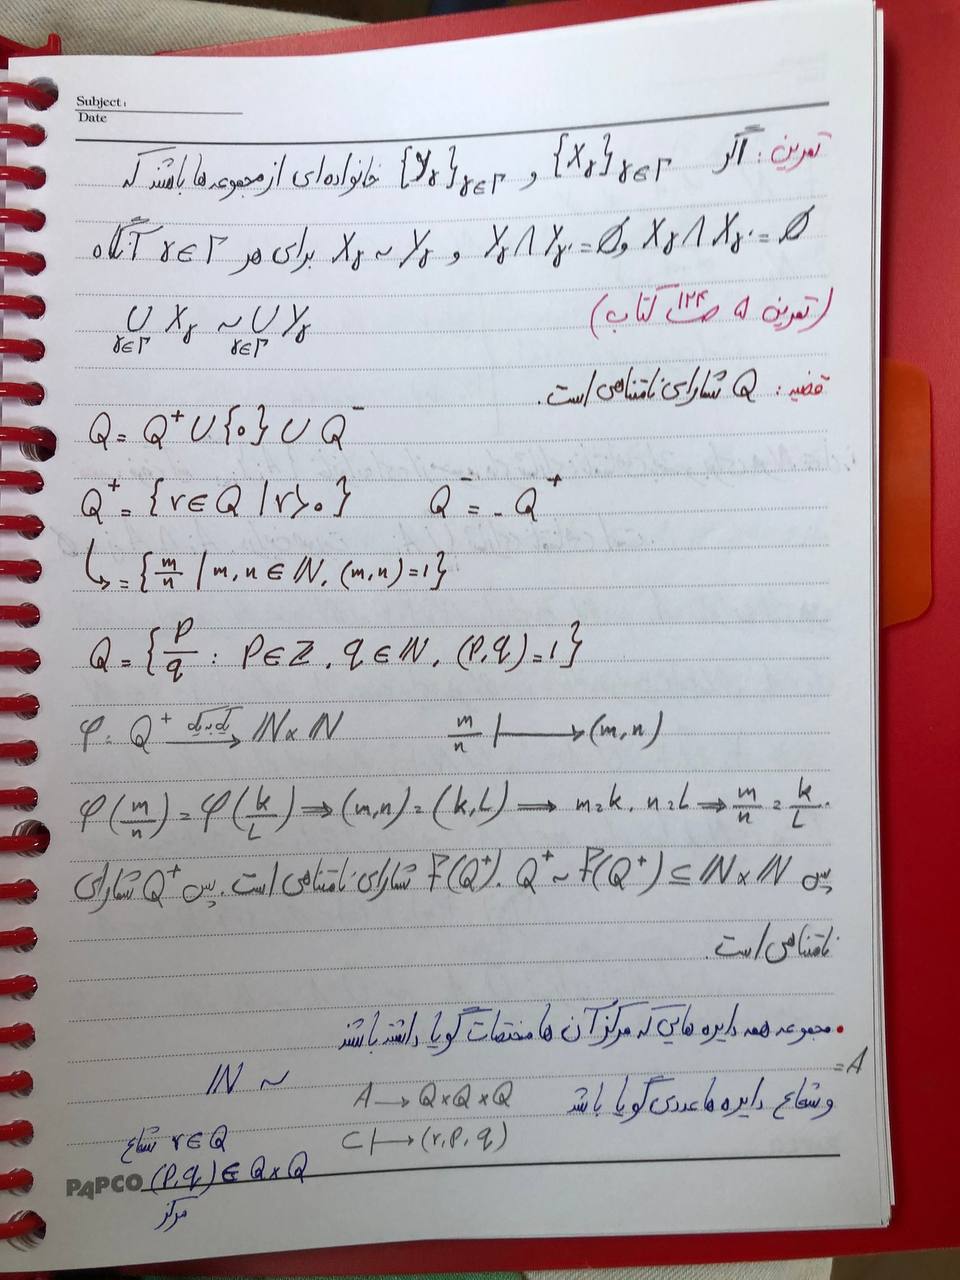 Subject:
Date
تمرین: اگر {Xγ}γ∈Γ و {Yγ}γ∈Γ خانواده‌ای از مجموعه‌ها باشند که
Xγ∩Xγ'=∅ و Yγ∩Yγ'=∅ و Xγ~Yγ برای هر γ∈Γ آنگاه
∪γ∈Γ Xγ ~ ∪γ∈Γ Yγ
(تمرین ۵ ص ۱۲۴ کتاب)
قضیه: Q شمارای نامتناهی است.
Q = Q⁺ ∪ {0} ∪ Q⁻
Q⁺ = {r∈Q | r>0} Q⁻ = -Q⁺
↳ = {m/n | m,n ∈ ℕ, (m,n)=1}
Q = {P/q : P∈ℤ, q∈ℕ, (P,q)=1}
φ: Q⁺ →(یک‌به‌یک) ℕ×ℕ m/n ⟼ (m,n)
φ(m/n) = φ(k/L) ⇒ (m,n)=(k,L) ⇒ m=k, n=L ⇒ m/n = k/L.
پس Q⁺ ~ F(Q⁺) ⊆ ℕ×ℕ. F(Q⁺) شمارای نامتناهی است. پس Q⁺ شمارای
نامتناهی است.
• مجموعه همه دایره هایی که مرکز آن ها مختصات گویا داشته باشند
و شعاع دایره ها عددی گویا باشد = A
ℕ ~
A → Q×Q×Q
C ⟼ (r,P,q)
شعاع r∈Q
(P,q) ∈ Q×Q
مرکز
PAPCO